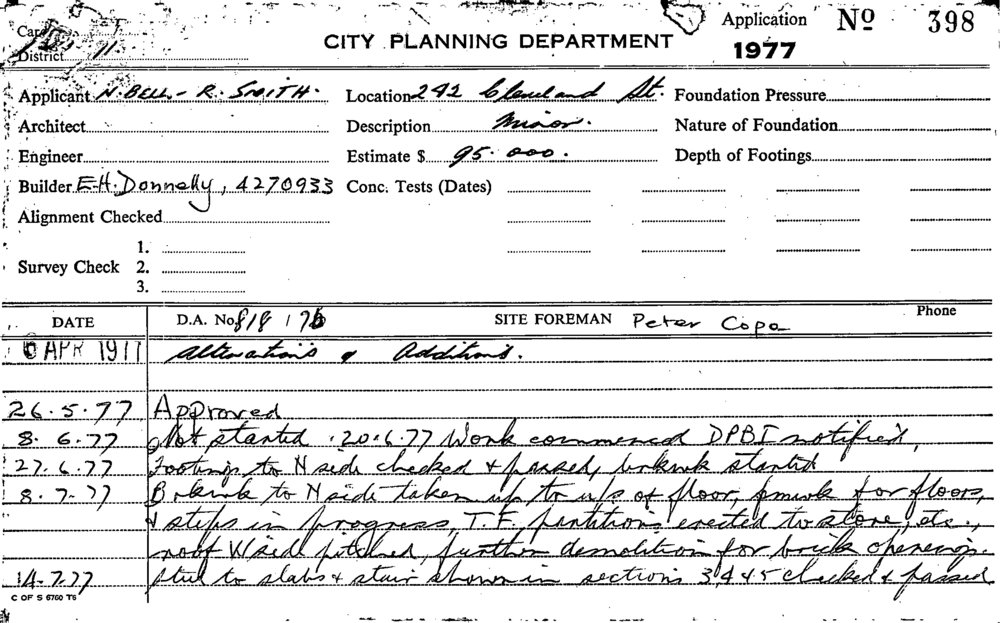 Card
District 11
CITY PLANNING DEPARTMENT
Application Nº 398
1977
Applicant N. BELL - R. SMITH.
Location 242 Cleveland St.
Foundation Pressure
Architect
Description Minor.
Nature of Foundation
Engineer
Estimate $ 95.000.
Depth of Footings
Builder E.H. Donnelly, 4270933
Conc. Tests (Dates)
Alignment Checked
Survey Check 1.
2.
3.
DATE D.A. No. 818 / 76 SITE FOREMAN Peter Copa Phone
APR 1977 Alterations & Additions.
26.5.77 Approved
8. 6.77 Not started . 20.6.77 Work commenced DPBI notified,
27.6.77 Footings to N side checked & passed, brkwk started
8.7.77 Brkwk to N side taken up to u/s of floor, fmwk for floors,
& steps in progress, T.F. partitions erected to store, etc,
roof W side pitched, further demolition for brick openings
14.7.77 Steel to slabs & stair shown in sections 3,4 & 5 checked & passed
C OF S 6760 T6